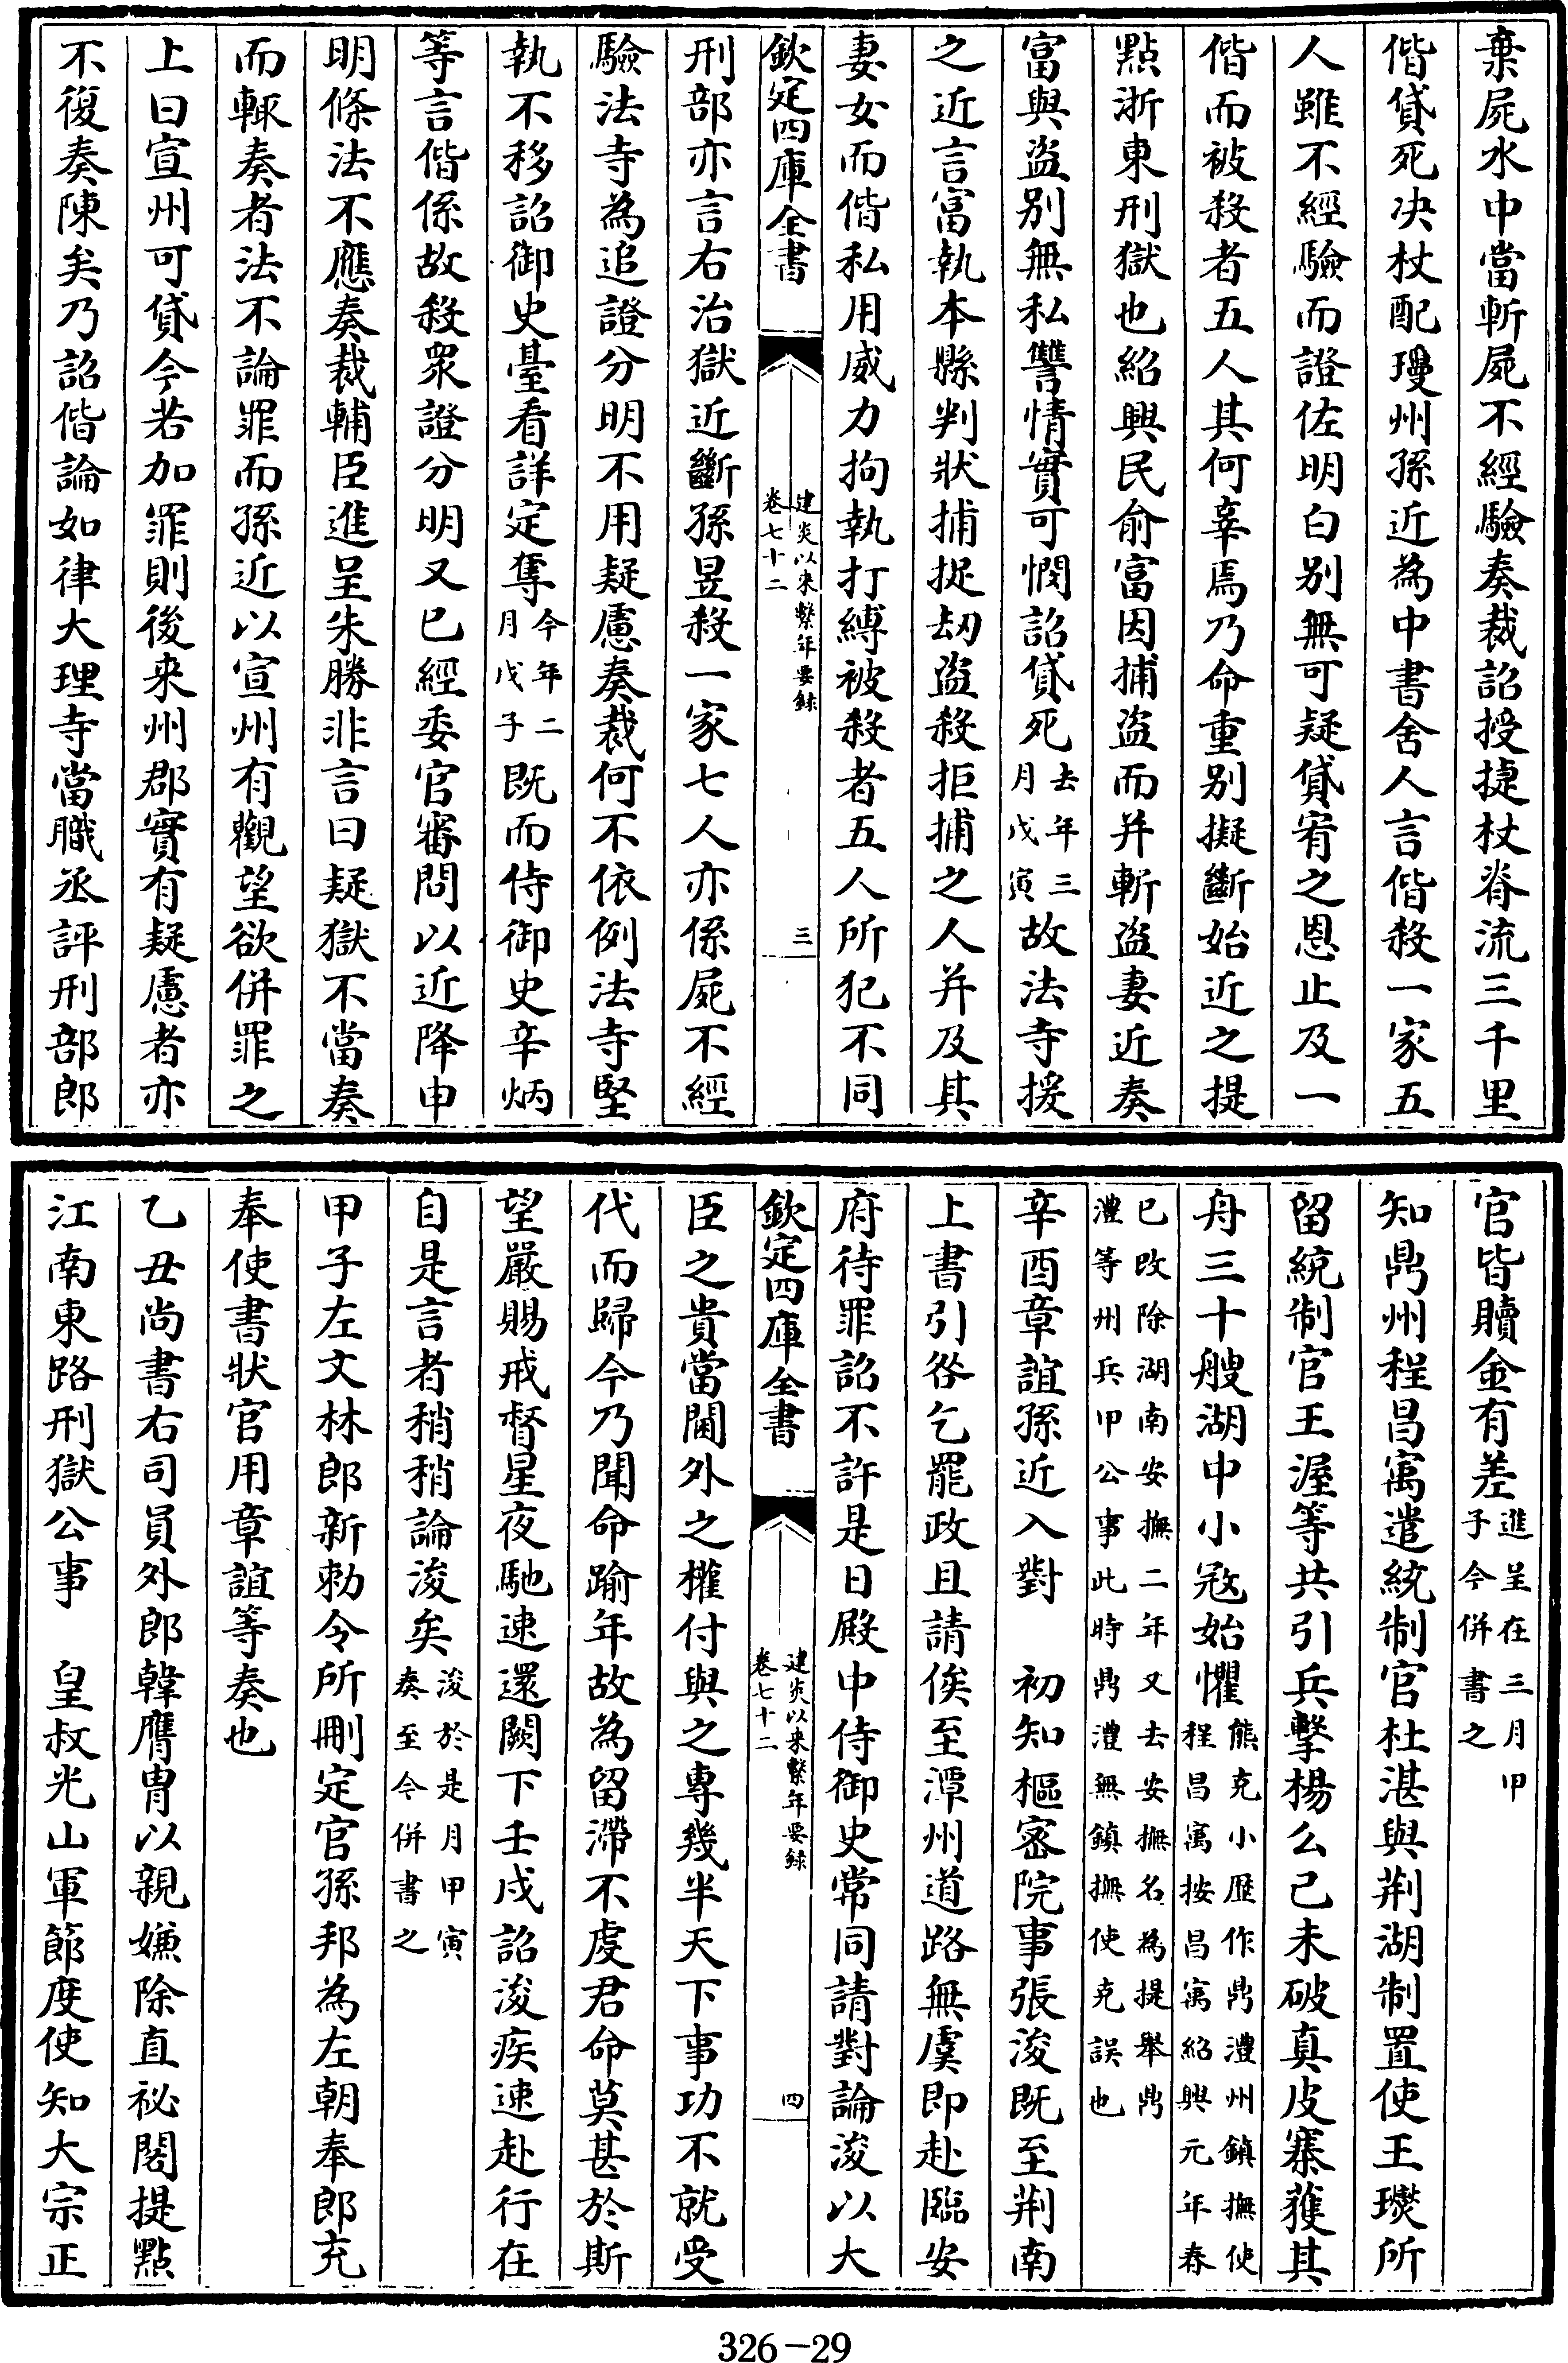 棄屍水中當斬屍不經驗奏裁詔授㨗杖脊流三千里
偕貸死决杖配瓊州孫近為中書舍人言偕殺一家五
人雖不經驗而證佐明白别無可疑貸宥之恩止及一
偕而被殺者五人其何辜焉乃命重别擬斷始近之提
點浙東刑獄也紹興民俞富因捕盜而并斬盜妻近奏
富與盜别無私讐情實可憫詔貸死去年三月戊寅故法寺援
之近言富執本縣判狀捕捉刼盜殺拒捕之人并及其
妻女而偕私用威力拘執打縛被殺者五人所犯不同
欽定四庫全書 建炎以來繫年要録 卷七十二 三
刑部亦言右治獄近斷孫昱殺一家七人亦係屍不經
驗法寺為追證分明不用疑慮奏裁何不依例法寺堅
執不移詔御史臺看詳定奪今年二月戊子既而侍御史辛炳
等言偕係故殺衆證分明又已經委官審問以近降申
明條法不應奏裁輔臣進呈朱勝非言曰疑獄不當奏
而輒奏者法不論罪而孫近以宣州有觀望欲併罪之
上曰宣州可貸今若加罪則後來州郡實有疑慮者亦
不復奏陳矣乃詔偕論如律大理寺當職丞評刑部郎
官皆贖金有差進呈在三月甲子今併書之
知鼎州程昌㝢遣統制官杜湛與荆湖制置使王𤫉所
留統制官王渥等共引兵擊楊么己未破真皮寨獲其
舟三十艘湖中小冦始懼熊克小歴作鼎澧州鎮撫使程昌㝢按昌㝢紹興元年春
已改除湖南安撫二年又去安撫名為提舉鼎澧等州兵甲公事此時鼎澧無鎮撫使克誤也
辛酉章誼孫近入對 初知樞密院事張浚既至荆南
上書引咎乞罷政且請俟至潭州道路無虞即赴臨安
府待罪詔不許是日殿中侍御史常同請對論浚以大
欽定四庫全書 建炎以來繫年要録 卷七十二 四
臣之貴當閫外之權付與之專幾半天下事功不就受
代而歸今乃聞命踰年故為留滯不虔君命莫甚於斯
望嚴賜戒督星夜馳速還闕下壬戌詔浚疾速赴行在
自是言者稍稍論浚矣浚於是月甲寅奏至今併書之
甲子左文林郎新勅令所刪定官孫邦為左朝奉郎充
奉使書狀官用章誼等奏也
乙丑尚書右司員外郎韓膺胄以親嫌除直祕閣提點
江南東路刑獄公事 皇叔光山軍節度使知大宗正
326-29